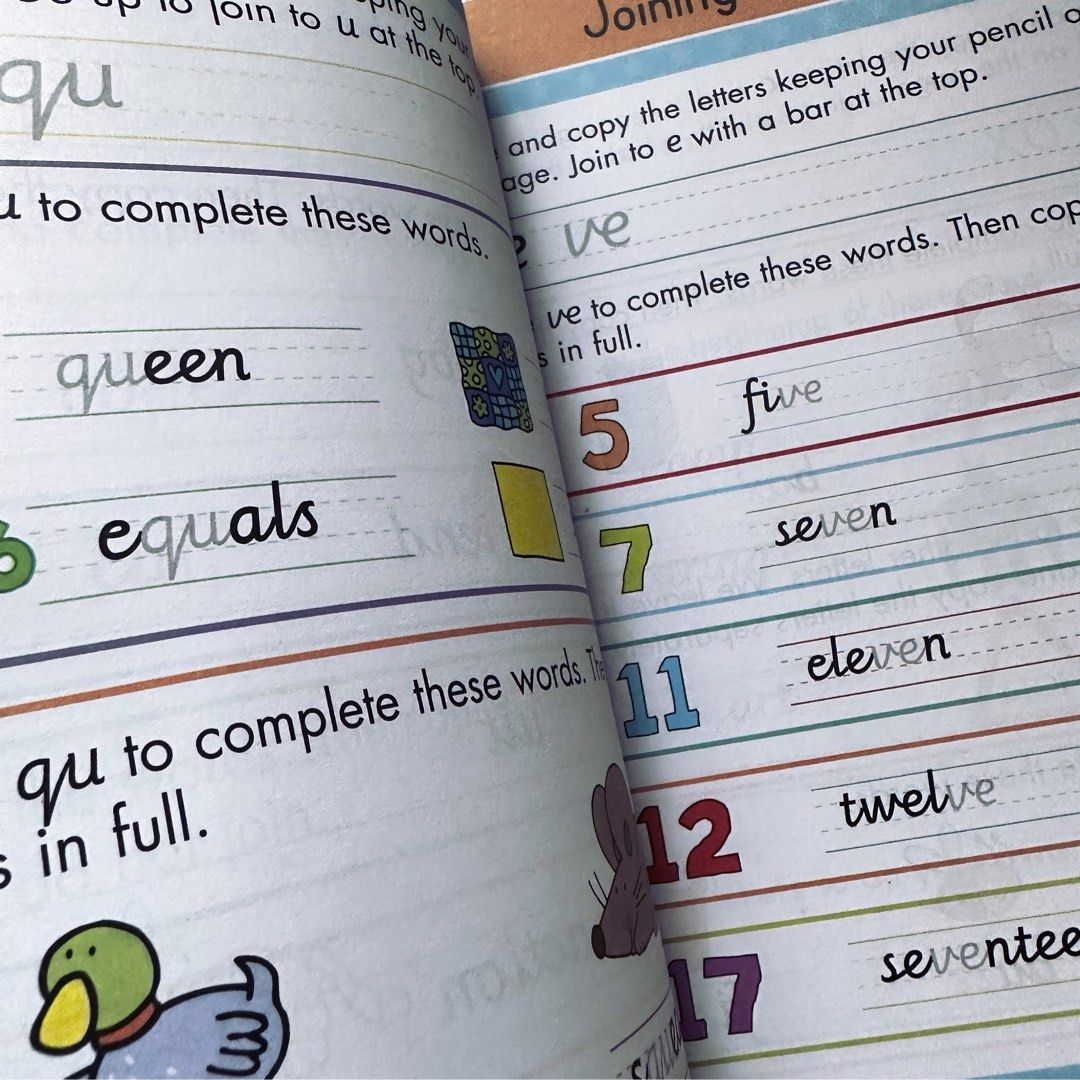 up to join to u at the top
qu
u to complete these words.
queen
equals
6
qu to complete these words.
s in full.
Joining
and copy the letters keeping your pencil
age. Join to e with a bar at the top.
e ve
ve to complete these words. Then cop
s in full.
5 five
7 seven
11 eleven
12 twelve
17 seventee